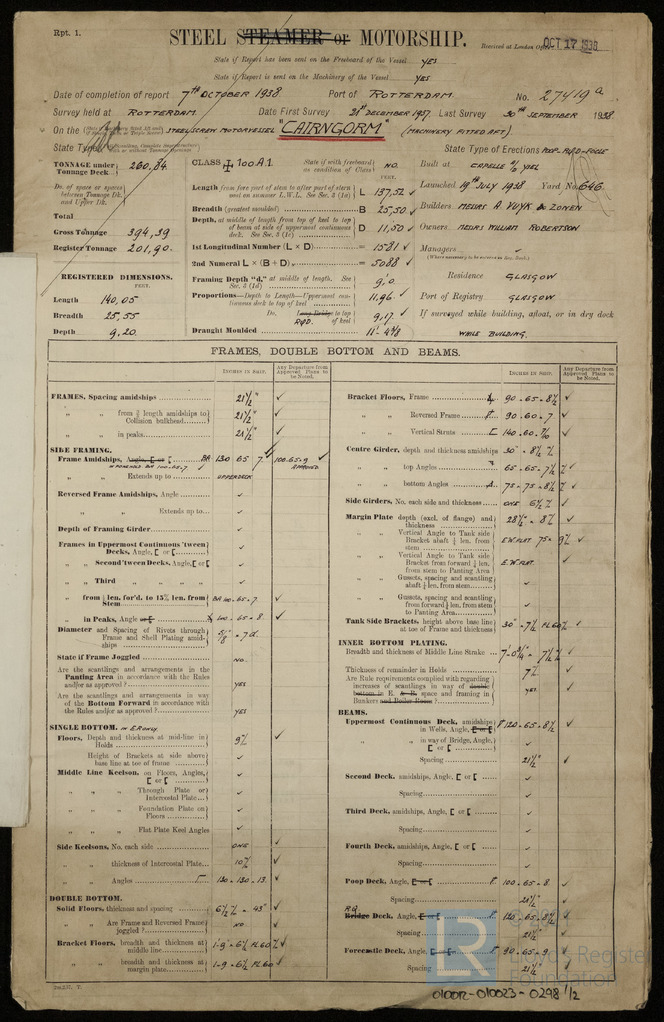 Rpt. 1.
STEEL STEAMER or MOTORSHIP.
Received at London Office OCT 17 1938
State if Report has been sent on the Freeboard of the Vessel YES
State if Report is sent on the Machinery of the Vessel YES
Date of completion of report 7th OCTOBER 1938 Port of ROTTERDAM No. 27419a
Survey held at ROTTERDAM. Date First Survey 31st DECEMBER 1937. Last Survey 30th SEPTEMBER 1938.
On the STEEL SCREW MOTORVESSEL "CAIRNGORM" (MACHINERY FITTED AFT)
State Type
State Type of Erections POOP-RQD-FOCLE
TONNAGE under Tonnage Deck 260,84
Do. of space or spaces between Tonnage Dk. and Upper Dk.
Total
Gross Tonnage 394,39
Register Tonnage 201,90.
REGISTERED DIMENSIONS.
FEET.
Length 140,05
Breadth 25,55
Depth 9,20.
CLASS 100 A.1. State if with freeboard as condition of Class NO.
FEET.
Length from fore part of stem to after part of stern post on summer L.W.L. See Sec. 3 (1a) L 137,52 ✓
Breadth (greatest moulded) B 25,50 ✓
Depth, at middle of length from top of keel to top of beam at side of uppermost continuous deck. See Sec. 3 (1c) D 11,50 ✓
1st Longitudinal Number (L × D) = 1581 ✓
2nd Numeral L × (B + D) = 5088 ✓
Framing Depth "d," at middle of length. See Sec. 3 (1d) 9,0
Proportions—Depth to Length—Uppermost continuous deck to top of keel 11,96 ✓
Do. Long Bridge to top of keel RQD. 9,17 ✓
Draught Moulded 11'-4 7/8
Built at CAPELLE a/d YSEL
Launched 19th JULY 1938 Yard No. 646.
Builders MESSRS A. VUYK & ZONEN
Owners MESSRS WILLIAM ROBERTSON
Managers
Residence GLASGOW
Port of Registry GLASGOW
If surveyed while building, afloat, or in dry dock
WHILE BUILDING.
FRAMES, DOUBLE BOTTOM AND BEAMS.
INCHES IN SHIP.
Any Departure from Approved Plans to be Noted.
FRAMES, Spacing amidships 21 1/2" ✓
" " from 3/5 length amidships to Collision bulkhead 21 1/2" ✓
" " in peaks 21 1/2" ✓
SIDE FRAMING.
Frame Amidships, Angle, [ or [ BA 130 65 7 ✓ 100.65.9 ✓
" " Extends up to UPPERDECK
Reversed Frame Amidships, Angle ✓
" " Extends up to ✓
Depth of Framing Girder ✓
Frames in Uppermost Continuous 'tween Decks, Angle, [ or [ ✓
" Second 'tween Decks, Angle, [ or [ ✓
" Third " " " " ✓
" from 1/5 len. for'd. to 15% len. from Stem BA 100.65.7 ✓
" in Peaks, Angle or [ 100.65.8. ✓
Diameter and Spacing of Rivets through Frame and Shell Plating amidships 5/8" = 7d. ✓
State if Frame Joggled NO.
Are the scantlings and arrangements in the Panting Area in accordance with the Rules and/or as approved? YES
Are the scantlings and arrangements in way of the Bottom Forward in accordance with the Rules and/or as approved? YES
SINGLE BOTTOM. IN E.R. ONLY
Floors, Depth and thickness at mid-line in Holds ✓
" Height of Brackets at side above base line at toe of frame ✓
Middle Line Keelson, on Floors, Angles, [ or [ ✓
" " Through Plate or Intercostal Plate ✓
" " Foundation Plate on Floors ✓
" " Flat Plate Keel Angles ✓
Side Keelsons, No. each side ONE ✓
" " thickness of Intercostal Plate ✓
" " Angles 130.130.13. ✓
DOUBLE BOTTOM.
Solid Floors, thickness and spacing 6 1/2 % - 43" ✓
" " Are Frame and Reversed Frame joggled? NO ✓
Bracket Floors, breadth and thickness at middle line 1-9" - 6 1/2 FL.60 ✓
" " breadth and thickness at margin plate 1-9 - 6 1/2 FL.60 ✓
INCHES IN SHIP.
Any Departure from Approved Plans to be Noted.
Bracket Floors, Frame 90.65.8 1/2 ✓
" " Reversed Frame 90.60.7 ✓
" " Vertical Struts 140.60.7/10 ✓
Centre Girder, depth and thickness amidships 30" - 8 1/2 % ✓
" " top Angles 65.65.7 1/2 % ✓
" " bottom Angles 75.75.8 1/2 % ✓
Side Girders, No. each side and thickness ONE 6 1/2 % ✓
Margin Plate depth (excl. of flange) and thickness 28 1/2" - 8 % ✓
" Vertical Angle to Tank side Bracket abaft 1/4 len. from stem E.W. FLAT. 75 ✓
" Vertical Angle to Tank side Bracket from forward 1/4 len. from stem to Panting Area E.W. FLAT.
" Gussets, spacing and scantling abaft 1/4 len. from stem ✓
" Gussets, spacing and scantling from forward 1/4 len. from stem to Panting Area ✓
Tank Side Brackets, height above base line at toe of Frame and thickness 30" - 7 1/2 FL.60 ✓
INNER BOTTOM PLATING.
Breadth and thickness of Middle Line Strake ✓
Thickness of remainder in Holds 7 % ✓
Are Rule requirements complied with regarding increases of scantlings in way of double bottom in E. & B. space and framing in Bunkers and Boiler Room? YES. ✓
BEAMS.
Uppermost Continuous Deck, amidships in Wells, Angle, [ or [ 120.65.8 1/2 ✓
" " in way of Bridge, Angle, [ or [
Spacing 21 1/2" ✓
Second Deck, amidships, Angle, [ or [ ✓
Spacing ✓
Third Deck, amidships, Angle, [ or [ ✓
Spacing ✓
Fourth Deck, amidships, Angle, [ or [ ✓
Spacing ✓
Poop Deck, Angle, [ or [ 100.65.8 ✓
Spacing 21 1/2" ✓
RQ
Bridge Deck, Angle, [ or [ 120.65.8 1/2 ✓
Spacing 21 1/2" ✓
Forecastle Deck, Angle, [ or [ 90.65.9 ✓
Spacing 21 1/2 ✓
LR
Lloyd's Register
Foundation
010012-010023-0298 1/2